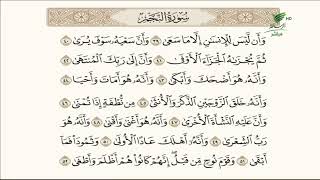 سُورَةُ النَّجْمِ
HD
وَأَن لَّيْسَ لِلْإِنسَٰنِ إِلَّا مَا سَعَىٰ ٣٩ وَأَنَّ سَعْيَهُۥ سَوْفَ يُرَىٰ ٤٠
ثُمَّ يُجْزَىٰهُ ٱلْجَزَآءَ ٱلْأَوْفَىٰ ٤١ وَأَنَّ إِلَىٰ رَبِّكَ ٱلْمُنتَهَىٰ ٤٢
وَأَنَّهُۥ هُوَ أَضْحَكَ وَأَبْكَىٰ ٤٣ وَأَنَّهُۥ هُوَ أَمَاتَ وَأَحْيَا ٤٤
وَأَنَّهُۥ خَلَقَ ٱلزَّوْجَيْنِ ٱلذَّكَرَ وَٱلْأُنثَىٰ ٤٥ مِن نُّطْفَةٍ إِذَا تُمْنَىٰ ٤٦
وَأَنَّ عَلَيْهِ ٱلنَّشْأَةَ ٱلْأُخْرَىٰ ٤٧ وَأَنَّهُۥ هُوَ أَغْنَىٰ وَأَقْنَىٰ ٤٨ وَأَنَّهُۥ هُوَ
رَبُّ ٱلشِّعْرَىٰ ٤٩ وَأَنَّهُۥٓ أَهْلَكَ عَادًا ٱلْأُولَىٰ ٥٠ وَثَمُودَا۟ فَمَآ
أَبْقَىٰ ٥١ وَقَوْمَ نُوحٍ مِّن قَبْلُ إِنَّهُمْ كَانُوا۟ هُمْ أَظْلَمَ وَأَطْغَىٰ ٥٢